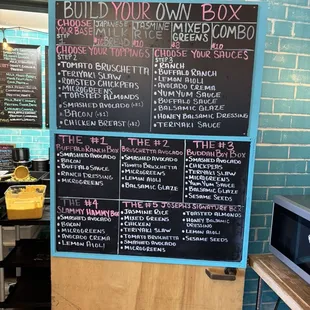 BUILD YOUR OWN BOX
CHOOSE
YOUR BASE
STEP 1
JAPANESE
MILK
JASMINE
RICE
MIXED
GREENS
COMBO
CHOOSE YOUR TOPPINGS
STEP 2
TOMATO BRUSCHETTA
TERIYAKI SLAW
ROASTED CHICKPEAS
MICROGREENS
TOASTED ALMONDS
SMASHED AVOCADO
BACON
CHICKEN BREAST
CHOOSE YOUR SAUCES
STEP 3
RANCH
BUFFALO RANCH
LEMON AIOLI
AVOCADO CREMA
YUM YUM SAUCE
BUFFALO SAUCE
BALSAMIC GLAZE
HONEY BALSAMIC DRESSING
TERIYAKI SAUCE
THE #1
BUFFALO RANCH BOX
SMASHED AVOCADO
BACON
BUFFALO SAUCE
RANCH DRESSING
MICROGREENS
THE #2
BRUSCHETTA AVOCADO
SMASHED AVOCADO
TOMATO BRUSCHETTA
MICROGREENS
LEMON AIOLI
BALSAMIC GLAZE
THE #3
BUDDHA BOX
SMASHED AVOCADO
CHICKPEAS
TERIYAKI SLAW
MICROGREENS
YUM YUM SAUCE
BALSAMIC GLAZE
SESAME SEEDS
THE #4
SLAMMY HAMMY BOX
SMASHED AVOCADO
BACON
MICROGREENS
AVOCADO CREMA
LEMON AIOLI
THE #5 JOSEPH'S SIGNATURE BOX
JASMINE RICE
MIXED GREENS
CHICKEN
TERIYAKI SLAW
TOMATO BRUSCHETTA
SMASHED AVOCADO
MICROGREENS
TOASTED ALMONDS
HONEY BALSAMIC
DRESSING
LEMON AIOLI
SESAME SEEDS